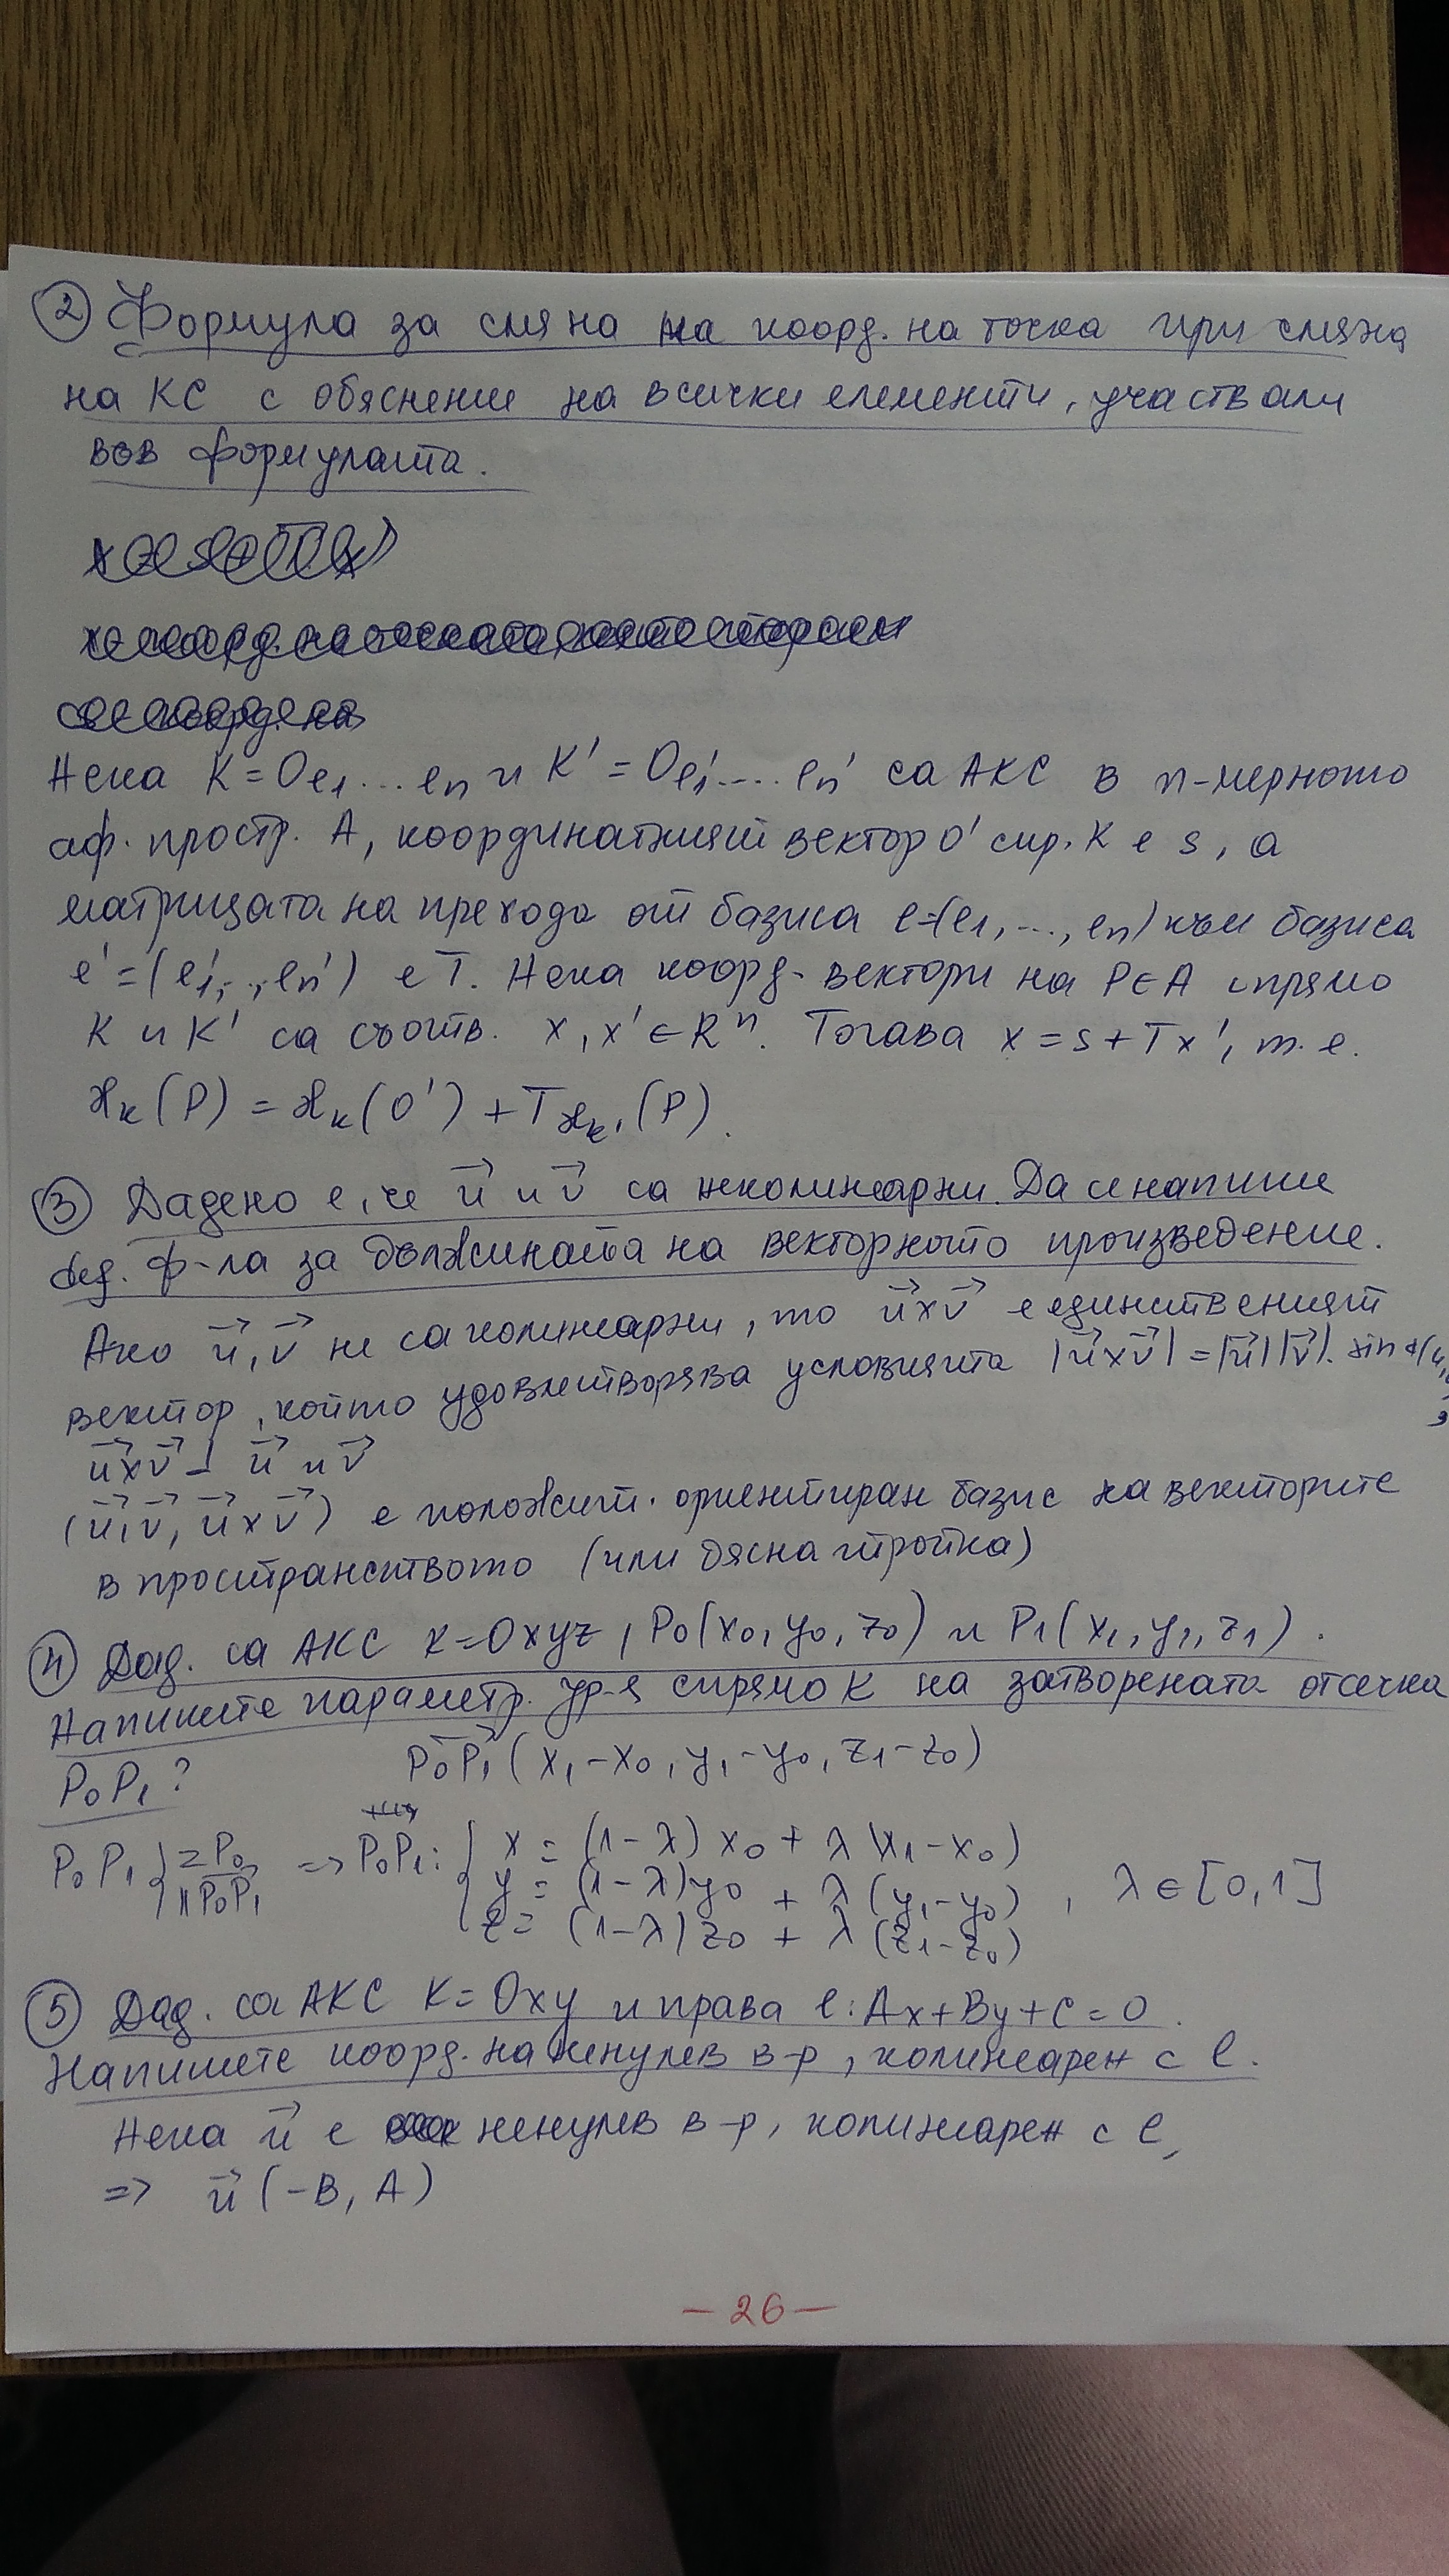 ② Формула за смяна на коорд. на точка при смяна
на КС с обяснение на всички елементи, участващи
във формулата.
Нека K=Oe₁...eₙ и K'=Oe₁'....eₙ' са АКС в n-мерното
аф. простр. A, координатният вектор O' спр. K е s, а
матрицата на прехода от базиса e=(e₁,...,eₙ) към базиса
e'=(e₁',..,eₙ') е T. Нека коорд. вектори на P∈A спрямо
K и K' са съотв. x, x'∈Rⁿ. Тогава x=s+Tx', т.е.
ϰₖ(P) = ϰₖ(O') + Tϰₖ'(P).
③ Дадено е, че u⃗ и v⃗ са неколинеарни. Да се напише
деф. ф-ла за дължината на векторното произведение.
Ако u⃗, v⃗ не са колинеарни, то u⃗×v⃗ е единственият
вектор, който удовлетворява условията |u⃗×v⃗|=|u⃗||v⃗|. sin ∢(u,
u⃗×v⃗ ⊥ u⃗ и v⃗
(u⃗, v⃗, u⃗×v⃗) е положит. ориентиран базис на векторите
в пространството (или дясна тройка)
④ Дад. са АКС K=Oxyz, P₀(x₀, y₀, z₀) и P₁(x₁, y₁, z₁).
Напишете параметр. ур-я спрямо K на затворената отсечка
P₀P₁?
P₀P₁⃗(x₁-x₀, y₁-y₀, z₁-z₀)
P₀P₁ { ∋P₀ ∥P₀P₁ => P₀P₁: { x = (1-λ)x₀ + λ(x₁-x₀)
y = (1-λ)y₀ + λ(y₁-y₀) , λ∈[0,1]
z = (1-λ)z₀ + λ(z₁-z₀)
⑤ Дад. са АКС K=Oxy и права l: Ax+By+C=0.
Напишете коорд. на ненулев в-р, колинеарен с l.
Нека u⃗ е ненулев в-р, колинеарен с l,
=> u⃗(-B, A)
- 26 -